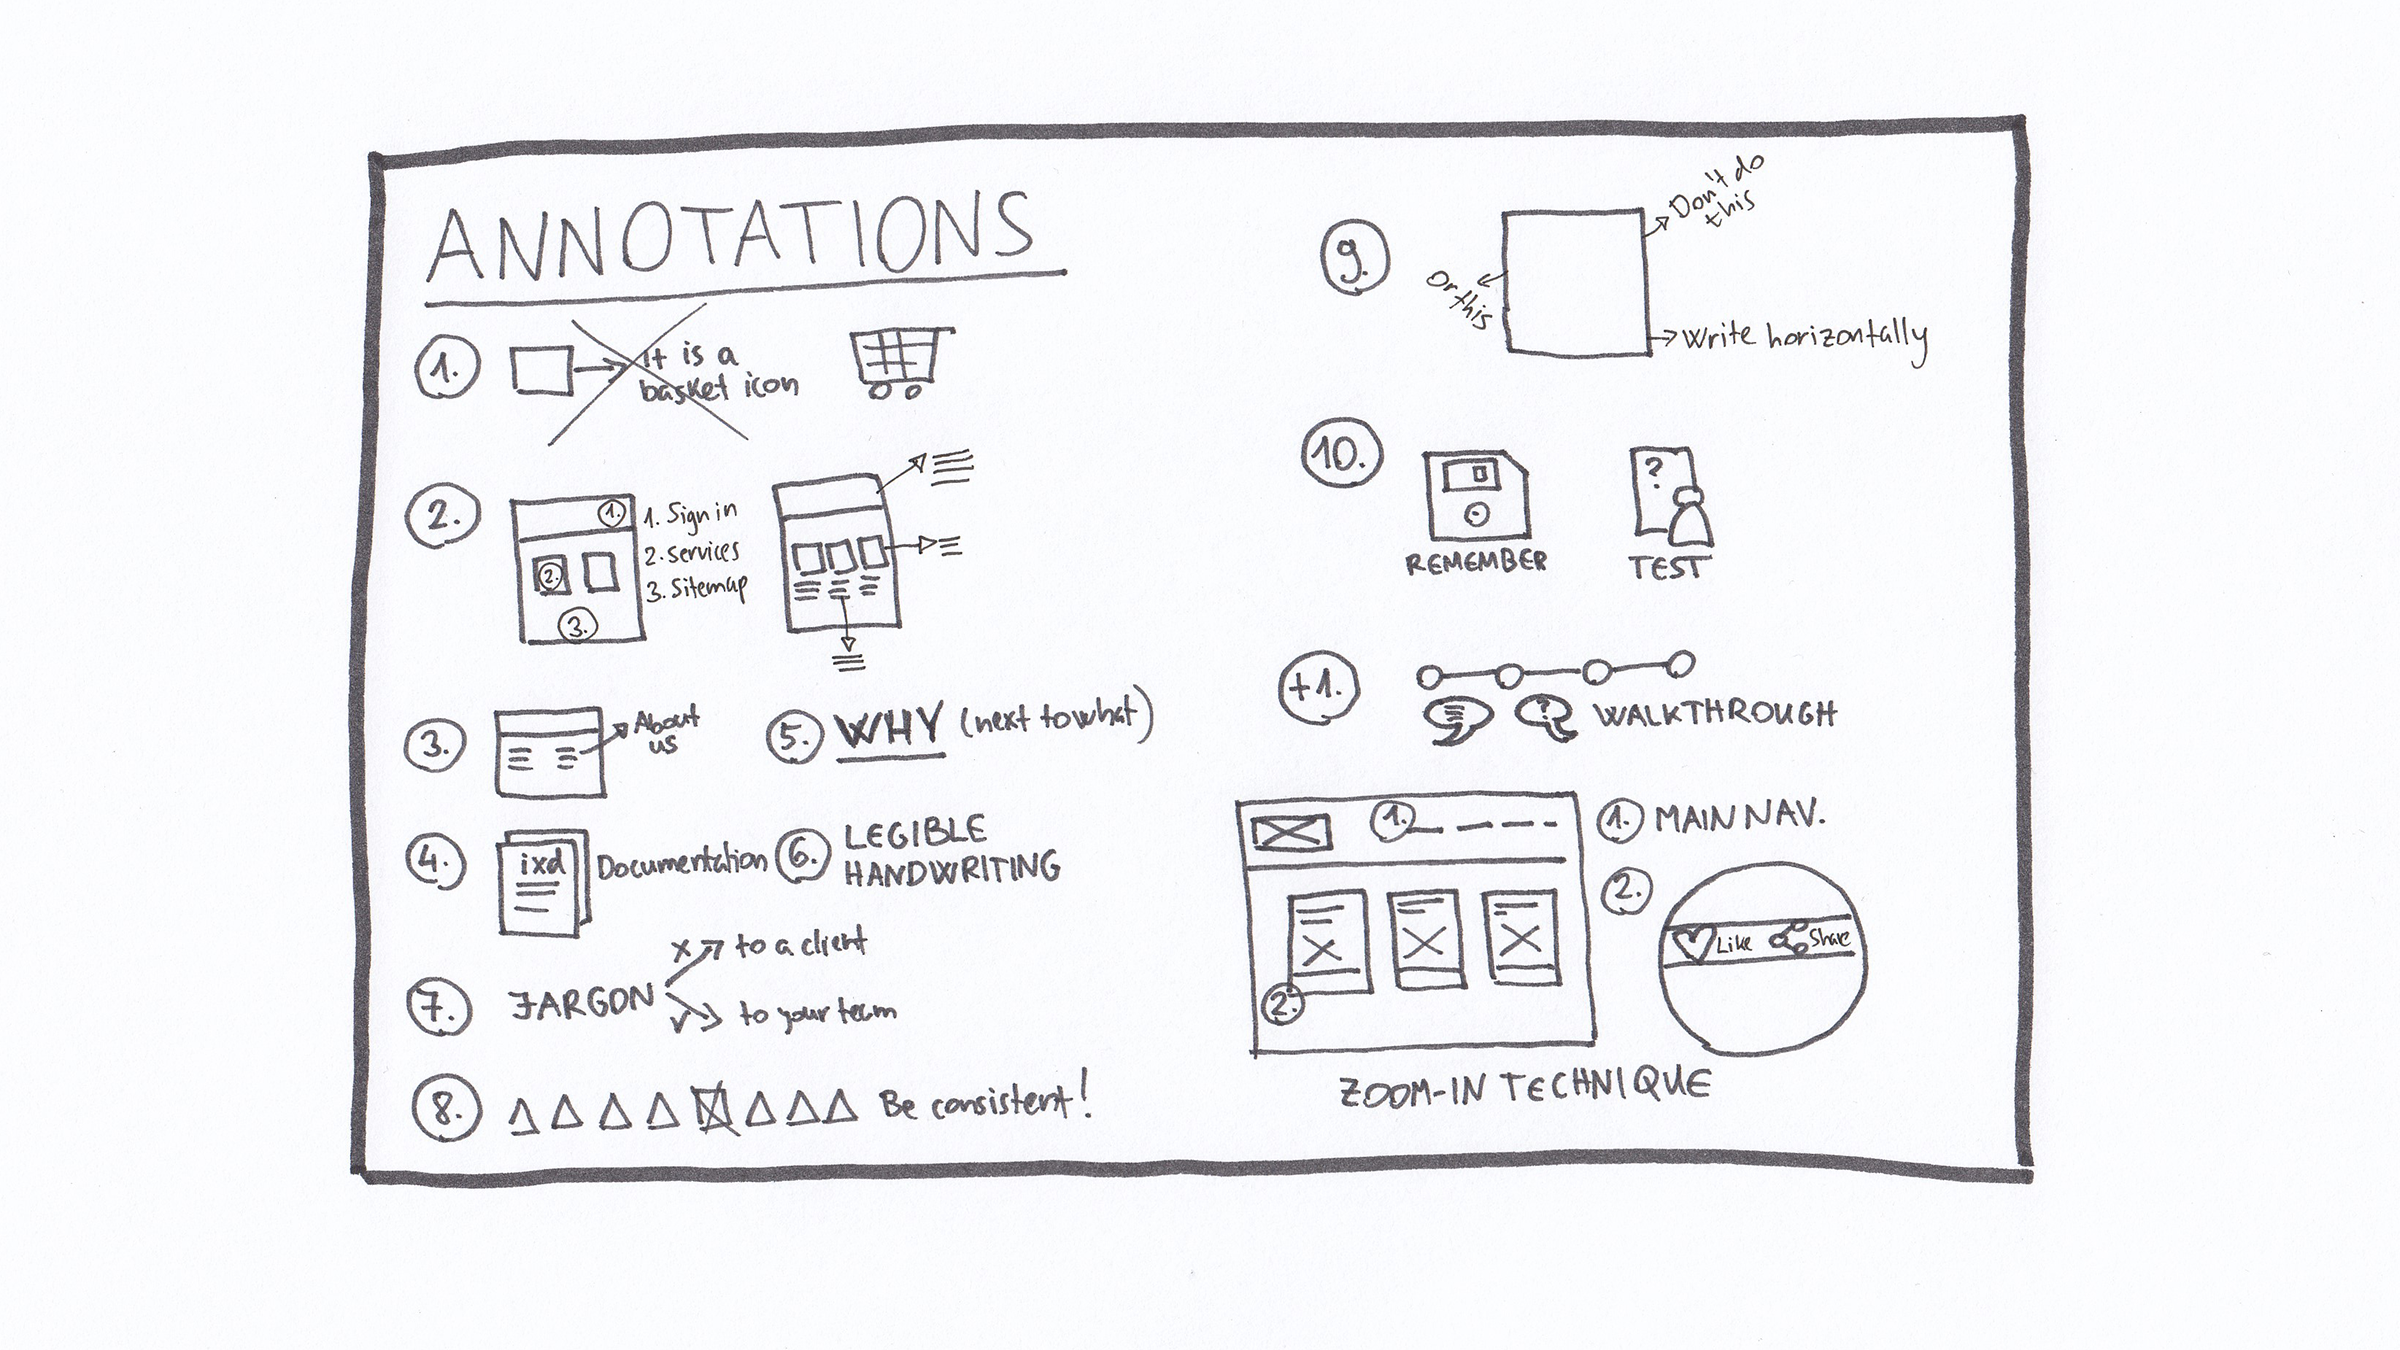 ANNOTATIONS
1.
It is a
basket icon
2.
1.
2.
3.
1. Sign in
2. Services
3. Sitemap
3.
About
us
4.
ixd
Documentation
5.
WHY (next to what)
6.
LEGIBLE
HANDWRITING
7.
JARGON
x to a client
to your team
8.
Be consistent!
9.
Don't do
this
Or this
Write horizontally
10.
REMEMBER
?
TEST
+1.
?
WALKTHROUGH
1.
2.
1. MAIN NAV.
2.
Like Share
ZOOM-IN TECHNIQUE